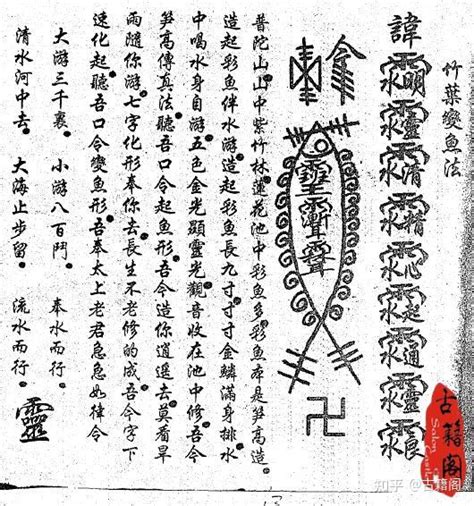 竹葉變魚法
諱
卍
普陀山山中紫竹林蓮花池中彩魚多彩魚本是笋高造。
造起彩魚伴水游。造起彩魚長九寸寸寸金鱗滿身排水
池中喝水身自游。五色金光顯靈光。觀音收在池中修。吾令
笋高傳真法。聽吾口令起魚形。吾令造你逍遥去。莫看旱
雨隨你游。七字化形奉你去。長生不老修的成。吾令字下
速化起。聽吾口令變魚形。吾奉太上老君急急如律令
大游三千裏。 小游八百門。 奉水而行。
清水河中去。 大海止步留。 流水而行。
靈
古籍阁
知乎 @古籍阁